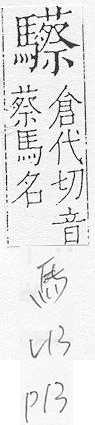 䮽
倉代切音
蔡馬名
馬
U13
P13